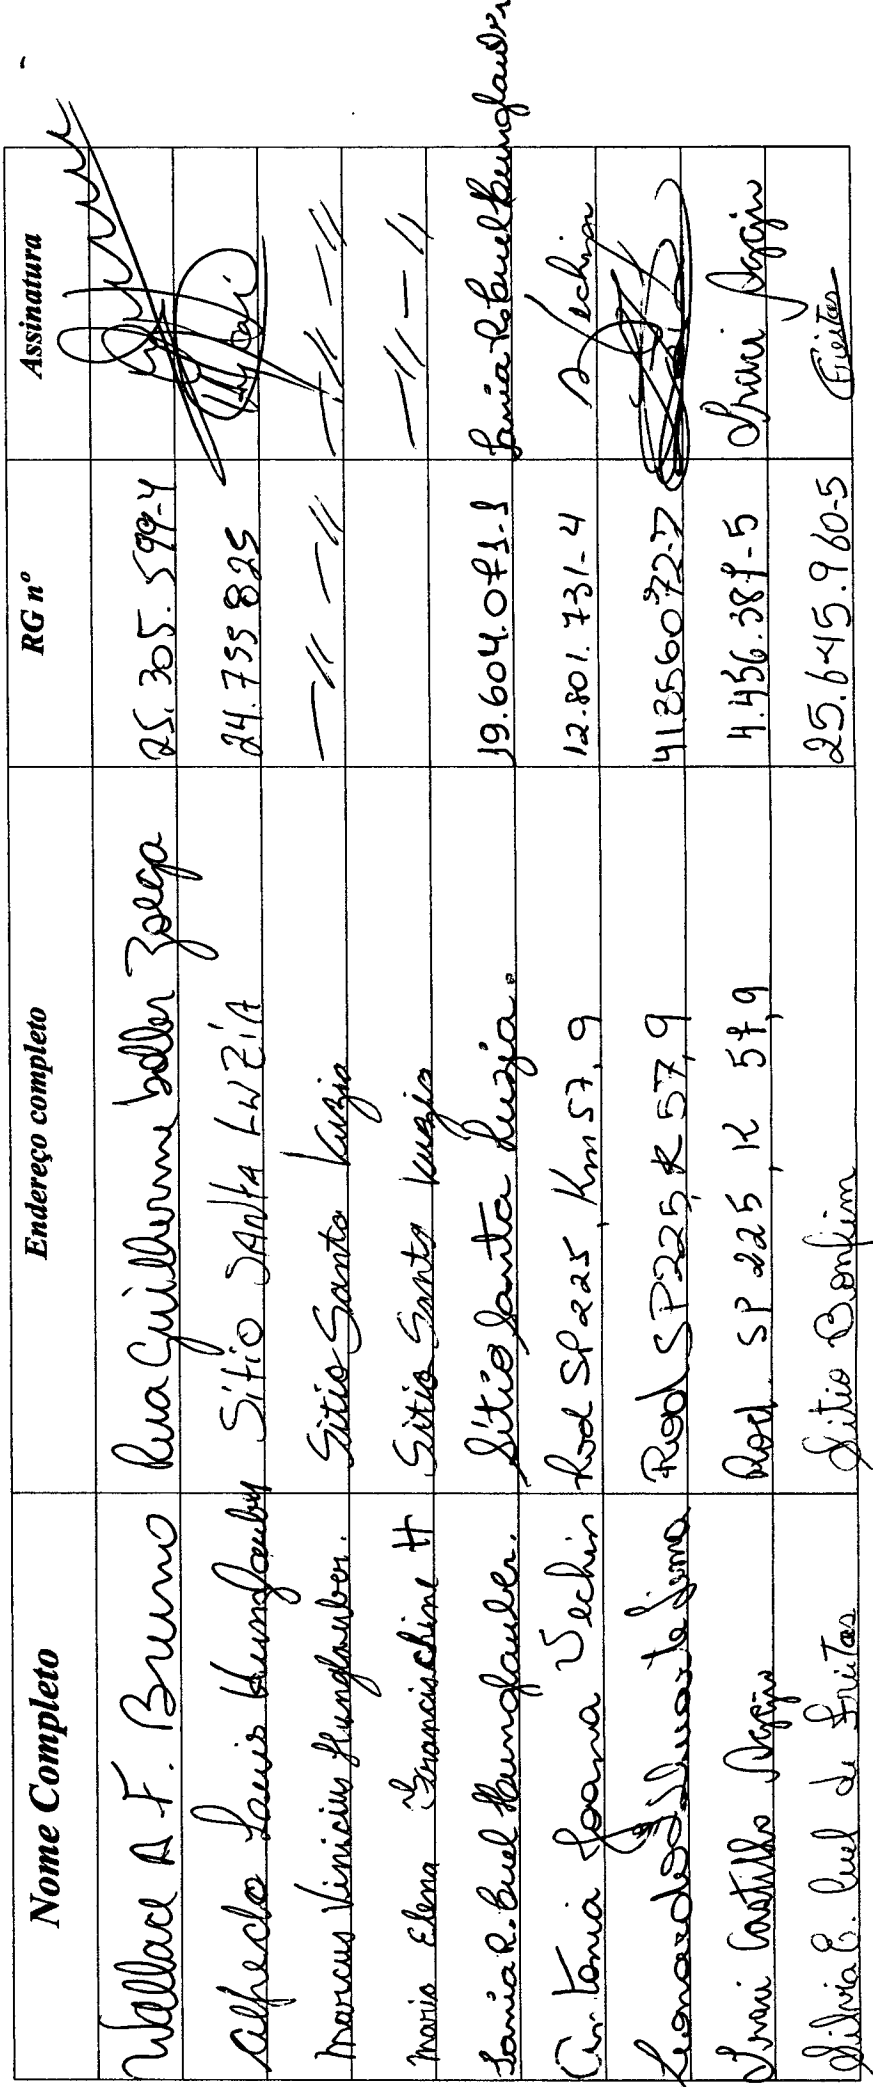 Nome Completo Endereço completo RG nº Assinatura
Wallace A F. Bruno Rua Guilherme 25.305.599-4
Alfredo Louis Sítio SANTA LUZIA 24.755825
Marcus Vinicius Hunglauber. Sitio Santa Luzia —//—// —//—//
Maria Elena Francischine H Sitio Santa Luzia —//—//
Sonia R. Buel Hunglauber. Sítio Santa Luzia. 19.604.071-1 Sonia R. Buel Hunglauber
Antonia Joana Vechin Rod SP225 Km 57,9 12.801.731-4 A Vechin
Leonardo Duarte Lima Rod SP225 K 57,9
Castilho Rod SP 225 K 57,9 4.456.387-5
Silvia E. Buel de Freitas Sitio Bonfim 25.645.960-5 Freitas